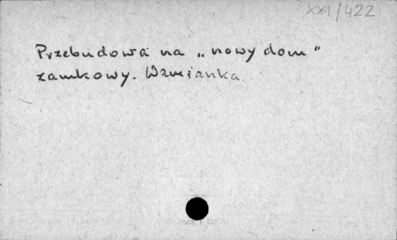 XXI/422
Przebudowa na „nowy dom"
zamkowy. Wzmianka